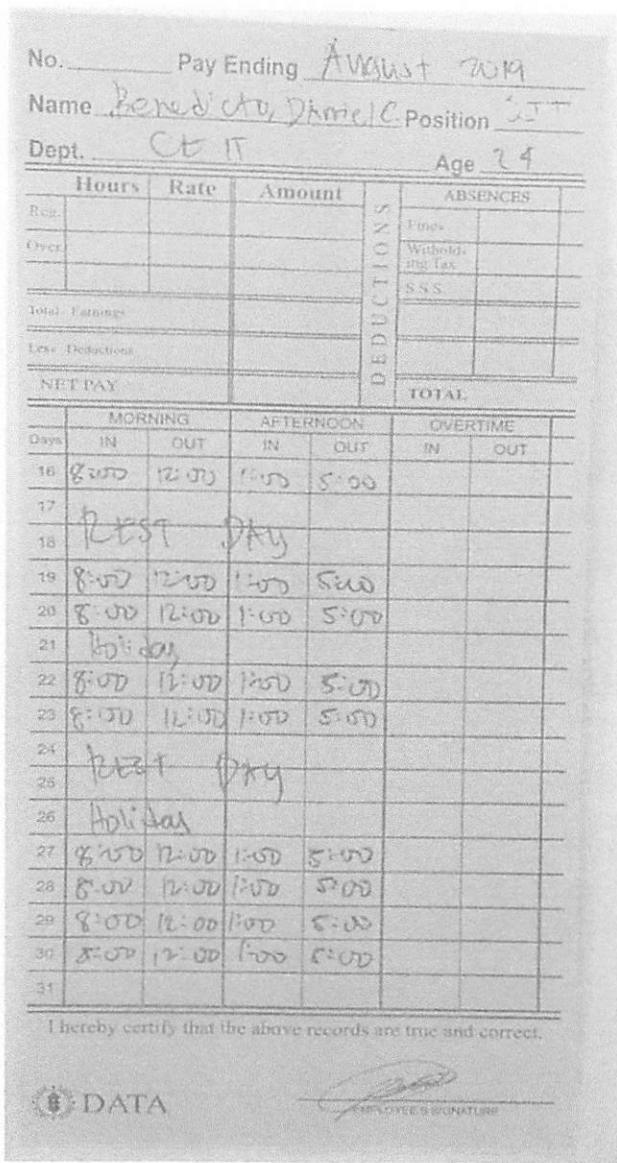 No. Pay Ending August 2019
Name Benedicto, Daniel C. Position
Dept. CE IT Age 24
Hours Rate Amount DEDUCTIONS ABSENCES
Reg. Fines
Over. Withold-
ing Tax
S.S.S.
Total Earnings
Less Deductions
NET PAY TOTAL
MORNING AFTERNOON OVERTIME
Days IN OUT IN OUT IN OUT
16 8:00 12:00 1:00 5:00
17
REST DAY
18
19 8:00 12:00 1:00 5:00
20 8:00 12:00 1:00 5:00
21 Holiday
22 8:00 12:00 1:00 5:00
23 8:00 12:00 1:00 5:00
24
REST DAY
25
26 Holiday
27 8:00 12:00 1:00 5:00
28 8:00 12:00 1:00 5:00
29 8:00 12:00 1:00 5:00
30 8:00 12:00 1:00 5:00
31
I hereby certify that the above records are true and correct.
DATA
EMPLOYEE'S SIGNATURE